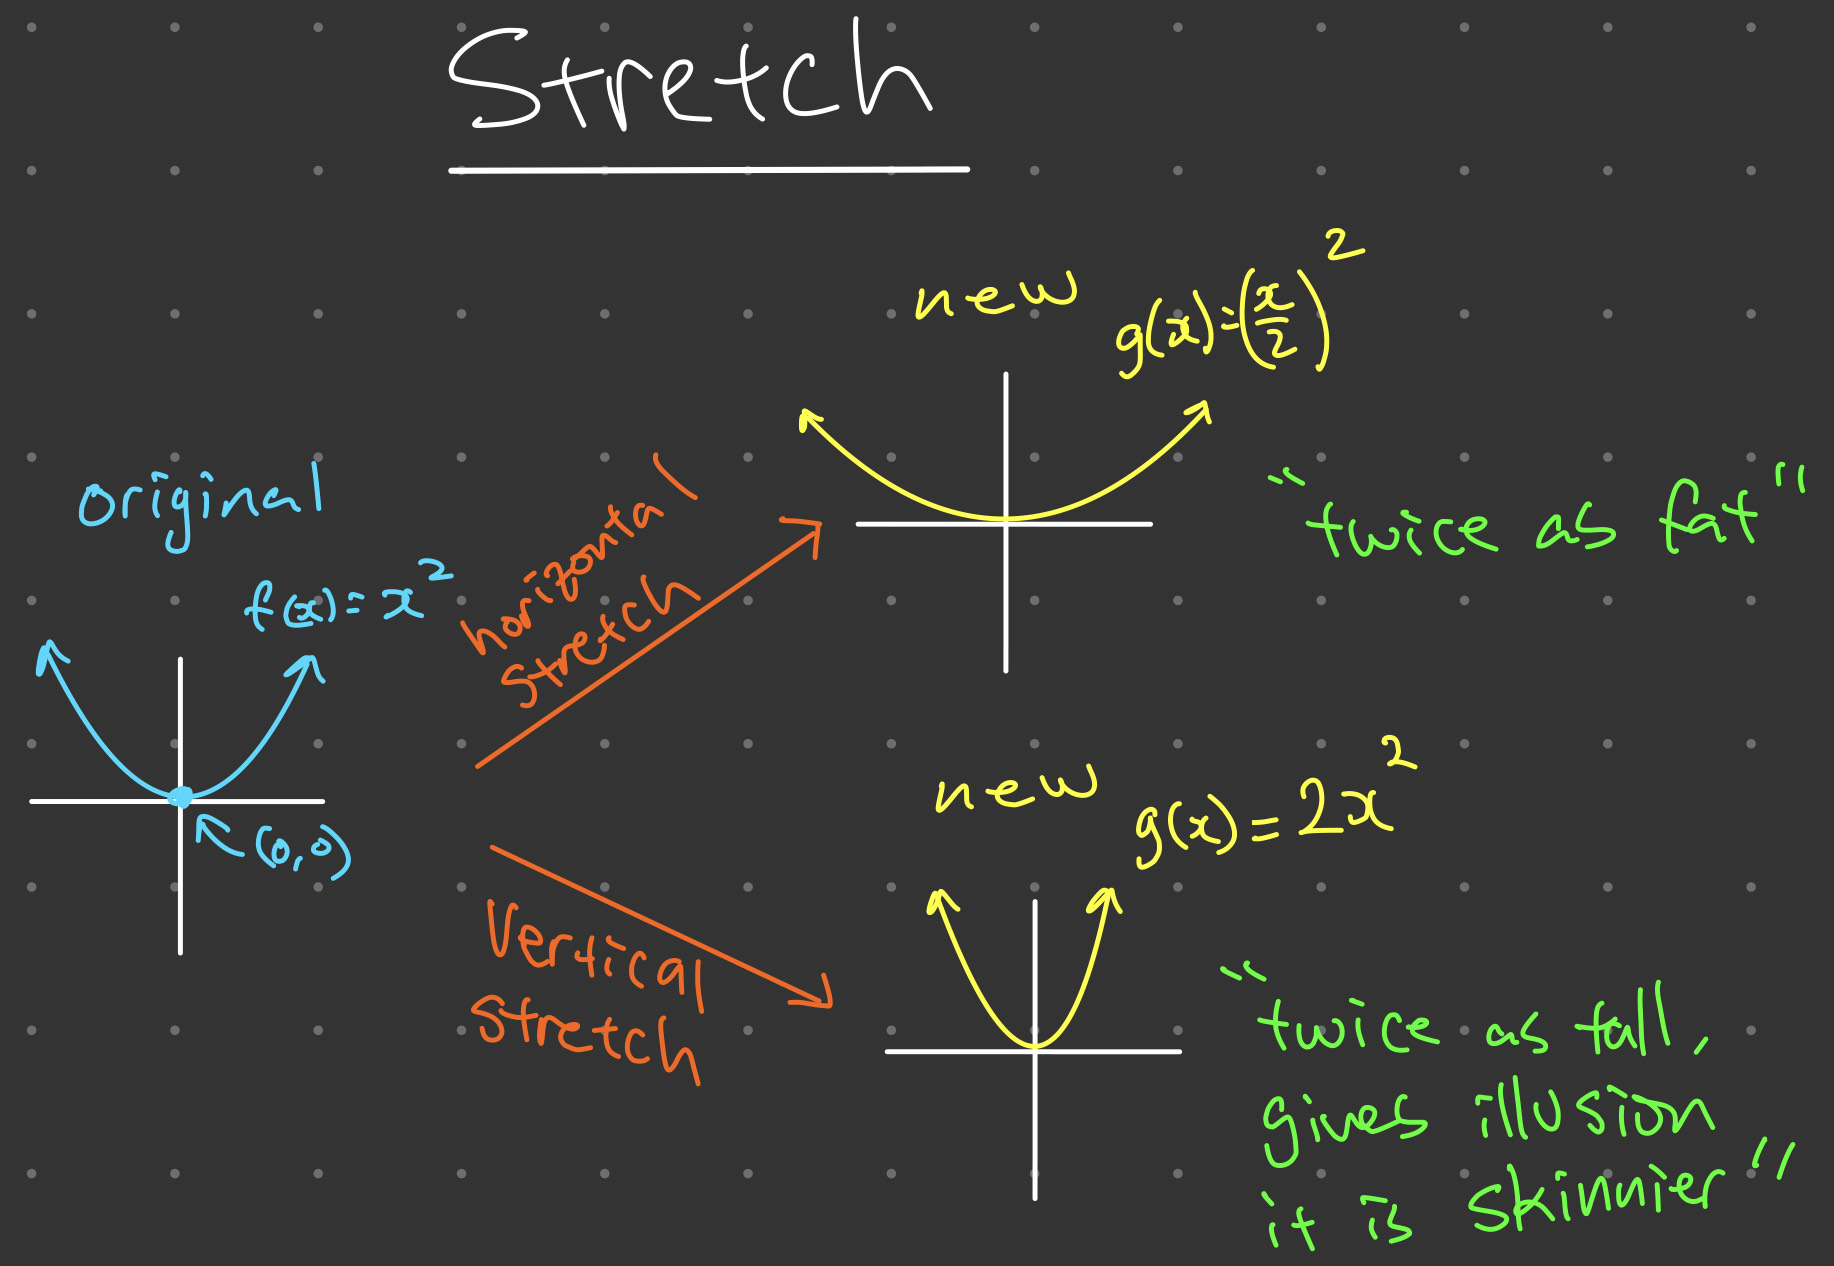 Stretch
new
g(x)=(x/2)²
"twice as fat"
original
f(x)=x²
(0,0)
horizontal
stretch
new
g(x)=2x²
Vertical
stretch
"twice as tall,
gives illusion
it is skinnier"